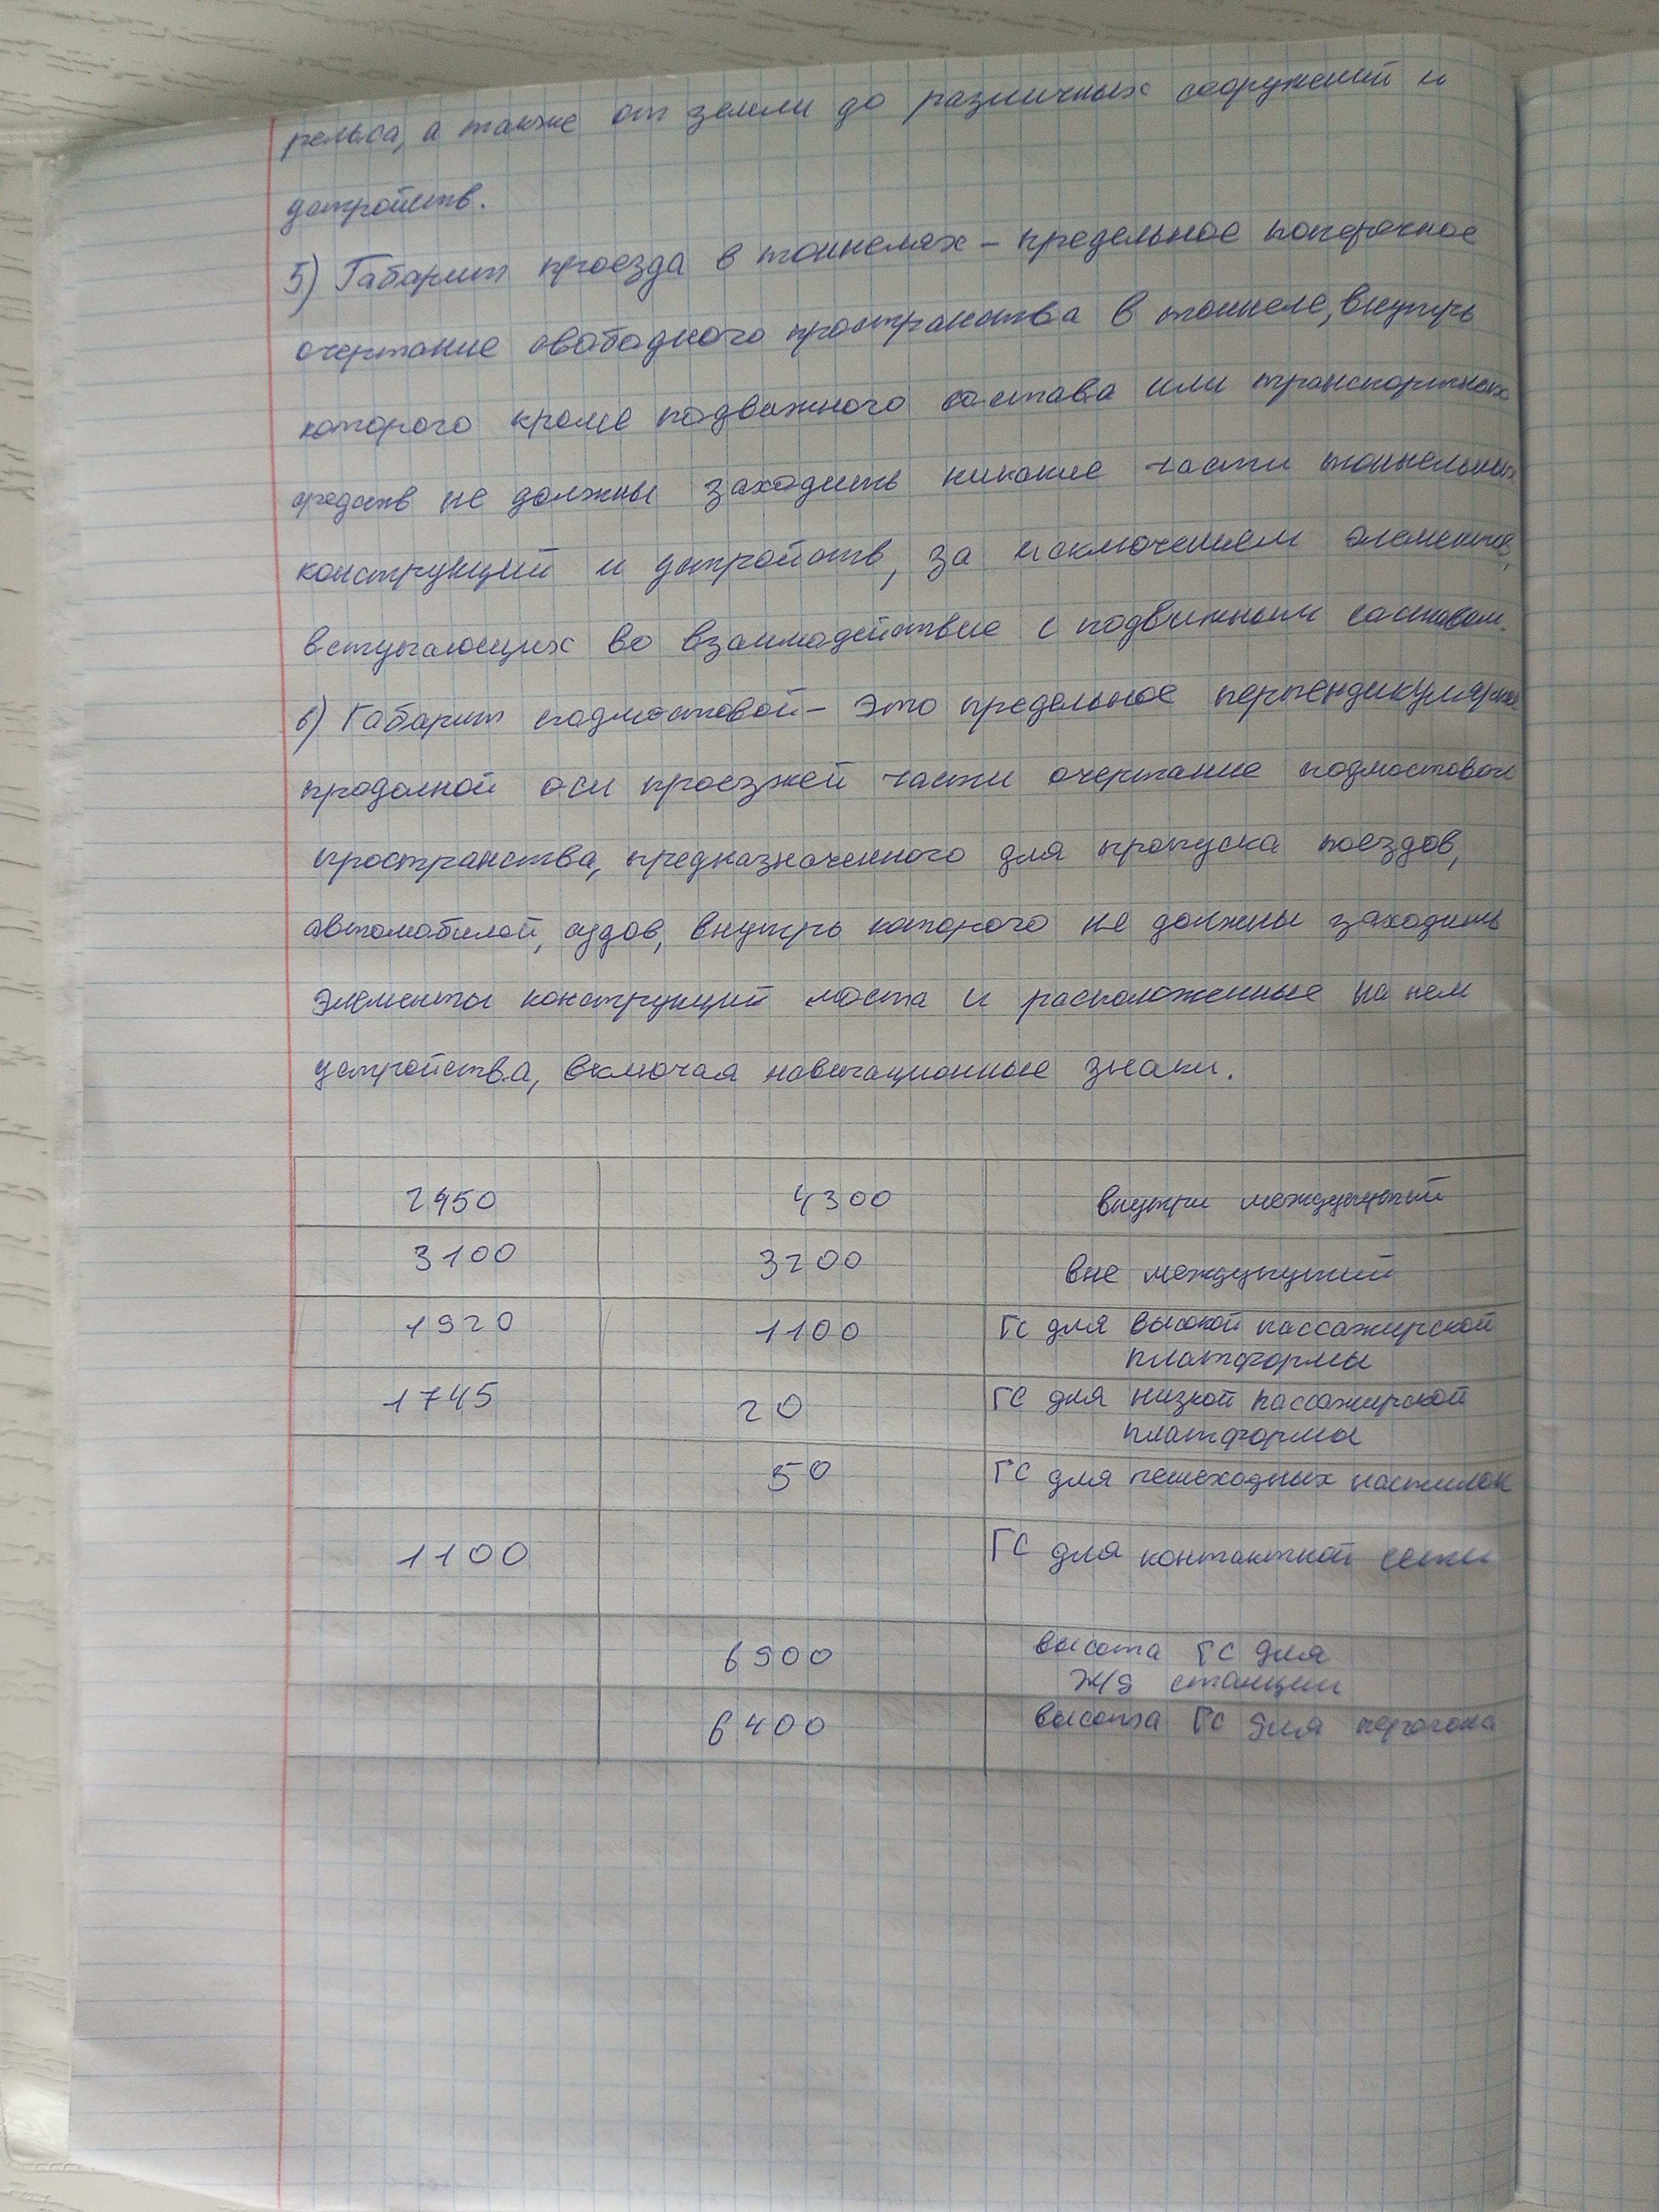 рельса, а также от земли до различных сооружений и
устройств.
5) Габарит проезда в тоннелях – предельное поперечное
очертание свободного пространства в тоннеле, внутрь
которого кроме подвижного состава или транспортных
средств не должны заходить никакие части тоннельных
конструкций и устройств, за исключением элементов,
вступающих во взаимодействие с подвижным составом.
6) Габарит подмостовой – это предельное перпендикулярное
продолной оси проезжей части очертание подмостового
пространства, предназначенного для пропуска поездов,
автомобилей, судов, внутрь которого не должны заходить
элементы конструкций моста и расположенные на нем
устройства, включая навигационные знаки.
2450 4300 внутри междупутий
3100 3200 вне междупутий
1920 1100 ГС для высокой пассажирской
платформы
1745 20 ГС для низкой пассажирской
платформы
50 ГС для пешеходных настилок
1100 ГС для контактной сети
6900 высота ГС для
ж/д станции
6400 высота ГС для перегона